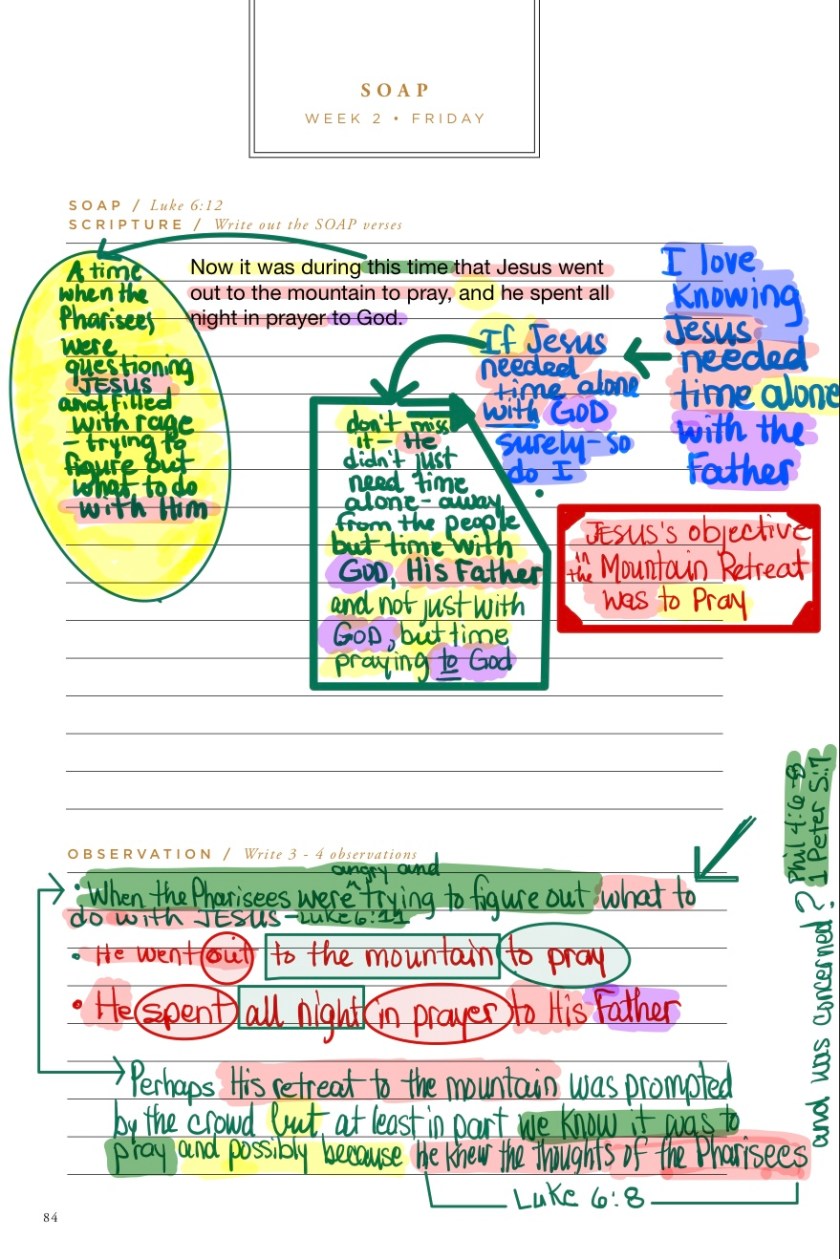 SOAP
WEEK 2 • FRIDAY
SOAP / Luke 6:12
SCRIPTURE / Write out the SOAP verses
Now it was during this time that Jesus went
out to the mountain to pray, and he spent all
night in prayer to God.
A time
when the
Pharisees
were
questioning
JESUS
and filled
with rage
– trying to
figure out
what to do
with Him
I love
knowing
Jesus
needed
time alone
with the
Father
If Jesus
needed
time alone
with GOD
surely–so
do I.
don't miss
it – He
didn't just
need time
alone – away
from the people
but time with
GOD, His Father
and not just with
GOD, but time
praying to God
JESUS's objective
in the Mountain Retreat
was to Pray
OBSERVATION / Write 3 - 4 observations
• When the Pharisees were ^ angry and trying to figure out what to
do with JESUS – Luke 6:11
• He went out to the mountain to pray
• He spent all night in prayer to His Father
Perhaps His retreat to the mountain was prompted
by the crowd but at least in part we know it was to
pray and possibly because he knew the thoughts of the Pharisees
Luke 6:8
and was concerned?
Phil 4:6-8
1 Peter 5:7
84